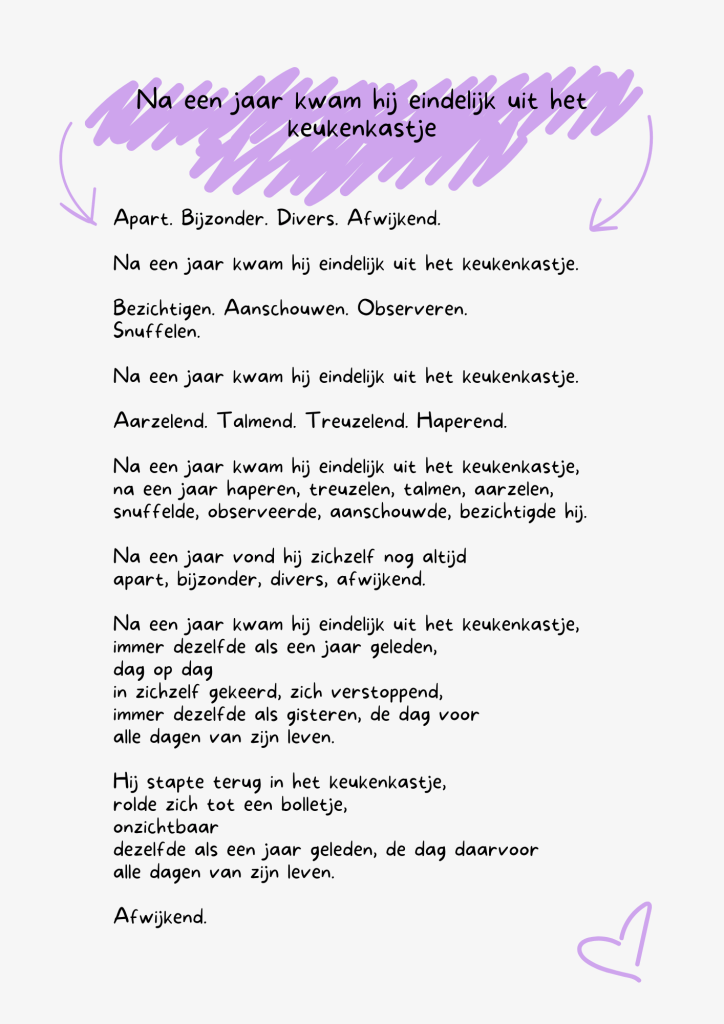 Na een jaar kwam hij eindelijk uit het
keukenkastje
Apart. Bijzonder. Divers. Afwijkend.
Na een jaar kwam hij eindelijk uit het keukenkastje.
Bezichtigen. Aanschouwen. Observeren.
Snuffelen.
Na een jaar kwam hij eindelijk uit het keukenkastje.
Aarzelend. Talmend. Treuzelend. Haperend.
Na een jaar kwam hij eindelijk uit het keukenkastje,
na een jaar haperen, treuzelen, talmen, aarzelen,
snuffelde, observeerde, aanschouwde, bezichtigde hij.
Na een jaar vond hij zichzelf nog altijd
apart, bijzonder, divers, afwijkend.
Na een jaar kwam hij eindelijk uit het keukenkastje,
immer dezelfde als een jaar geleden,
dag op dag
in zichzelf gekeerd, zich verstoppend,
immer dezelfde als gisteren, de dag voor
alle dagen van zijn leven.
Hij stapte terug in het keukenkastje,
rolde zich tot een bolletje,
onzichtbaar
dezelfde als een jaar geleden, de dag daarvoor
alle dagen van zijn leven.
Afwijkend.